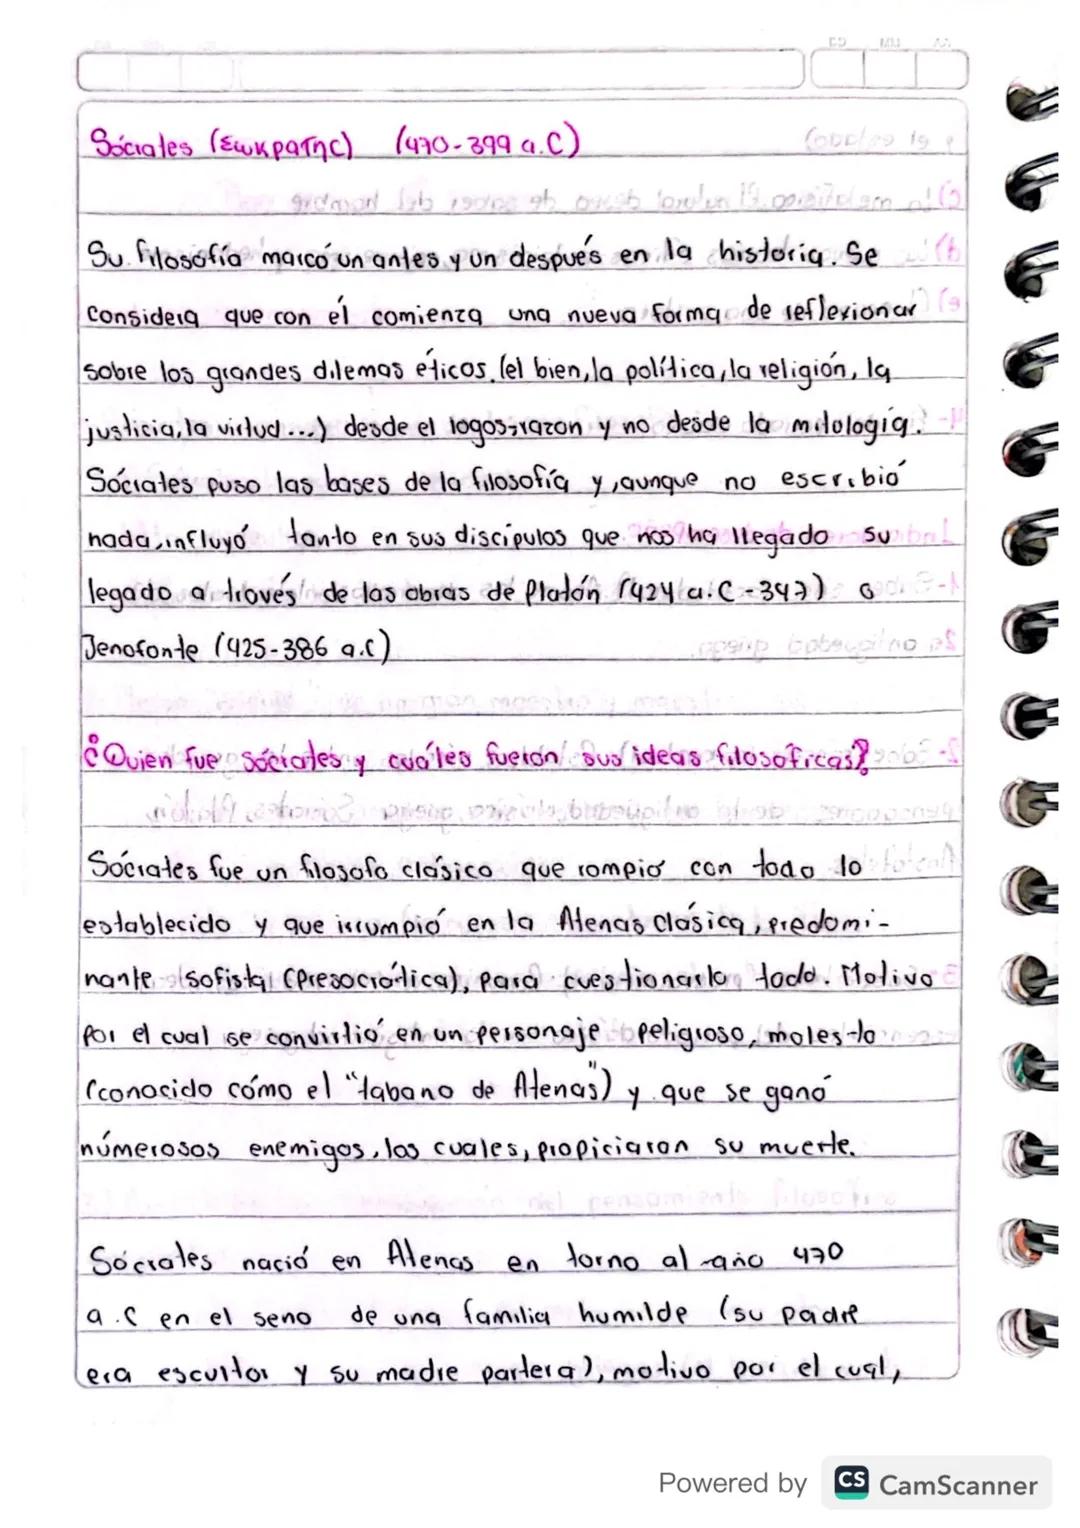 Sócrates (Σωκρατης) (470-399 a.C)
Su filosofía marcó un antes y un después en la história. Se
considera que con él comienza una nueva forma de reflexionar
sobre los grandes dilemas éticos (el bien, la política, la religión, la
justicia, la virtud...) desde el logos-razon y no desde la mitología.
Sócrates puso las bases de la filosofía y, aunque no escribió
nada, influyó tanto en sus discípulos que nos ha llegado su
legado a través de las obras de Platón (424 a.C - 347) o
Jenofonte (425-386 a.C)
¿Quien fue sócrates y cuáles fueron sus ideas filosofícas?
Sócrates fue un filosofo clásico que rompió con todo lo
establecido y que irrumpió en la Atenas Clásica, predomi-
nante sofista (presocrática), para cuestionarlo todo. Motivo
por el cual se convirtió en un personaje peligroso, molesto
(conocido cómo el "tabano de Atenas") y que se ganó
númerosos enemigos, los cuales, propiciaron su muerte.
Sócrates nació en Atenas en torno al año 470
a.C en el seno de una familia humilde (su padre
era escultor y su madre partera), motivo por el cual,
Powered by CS CamScanner